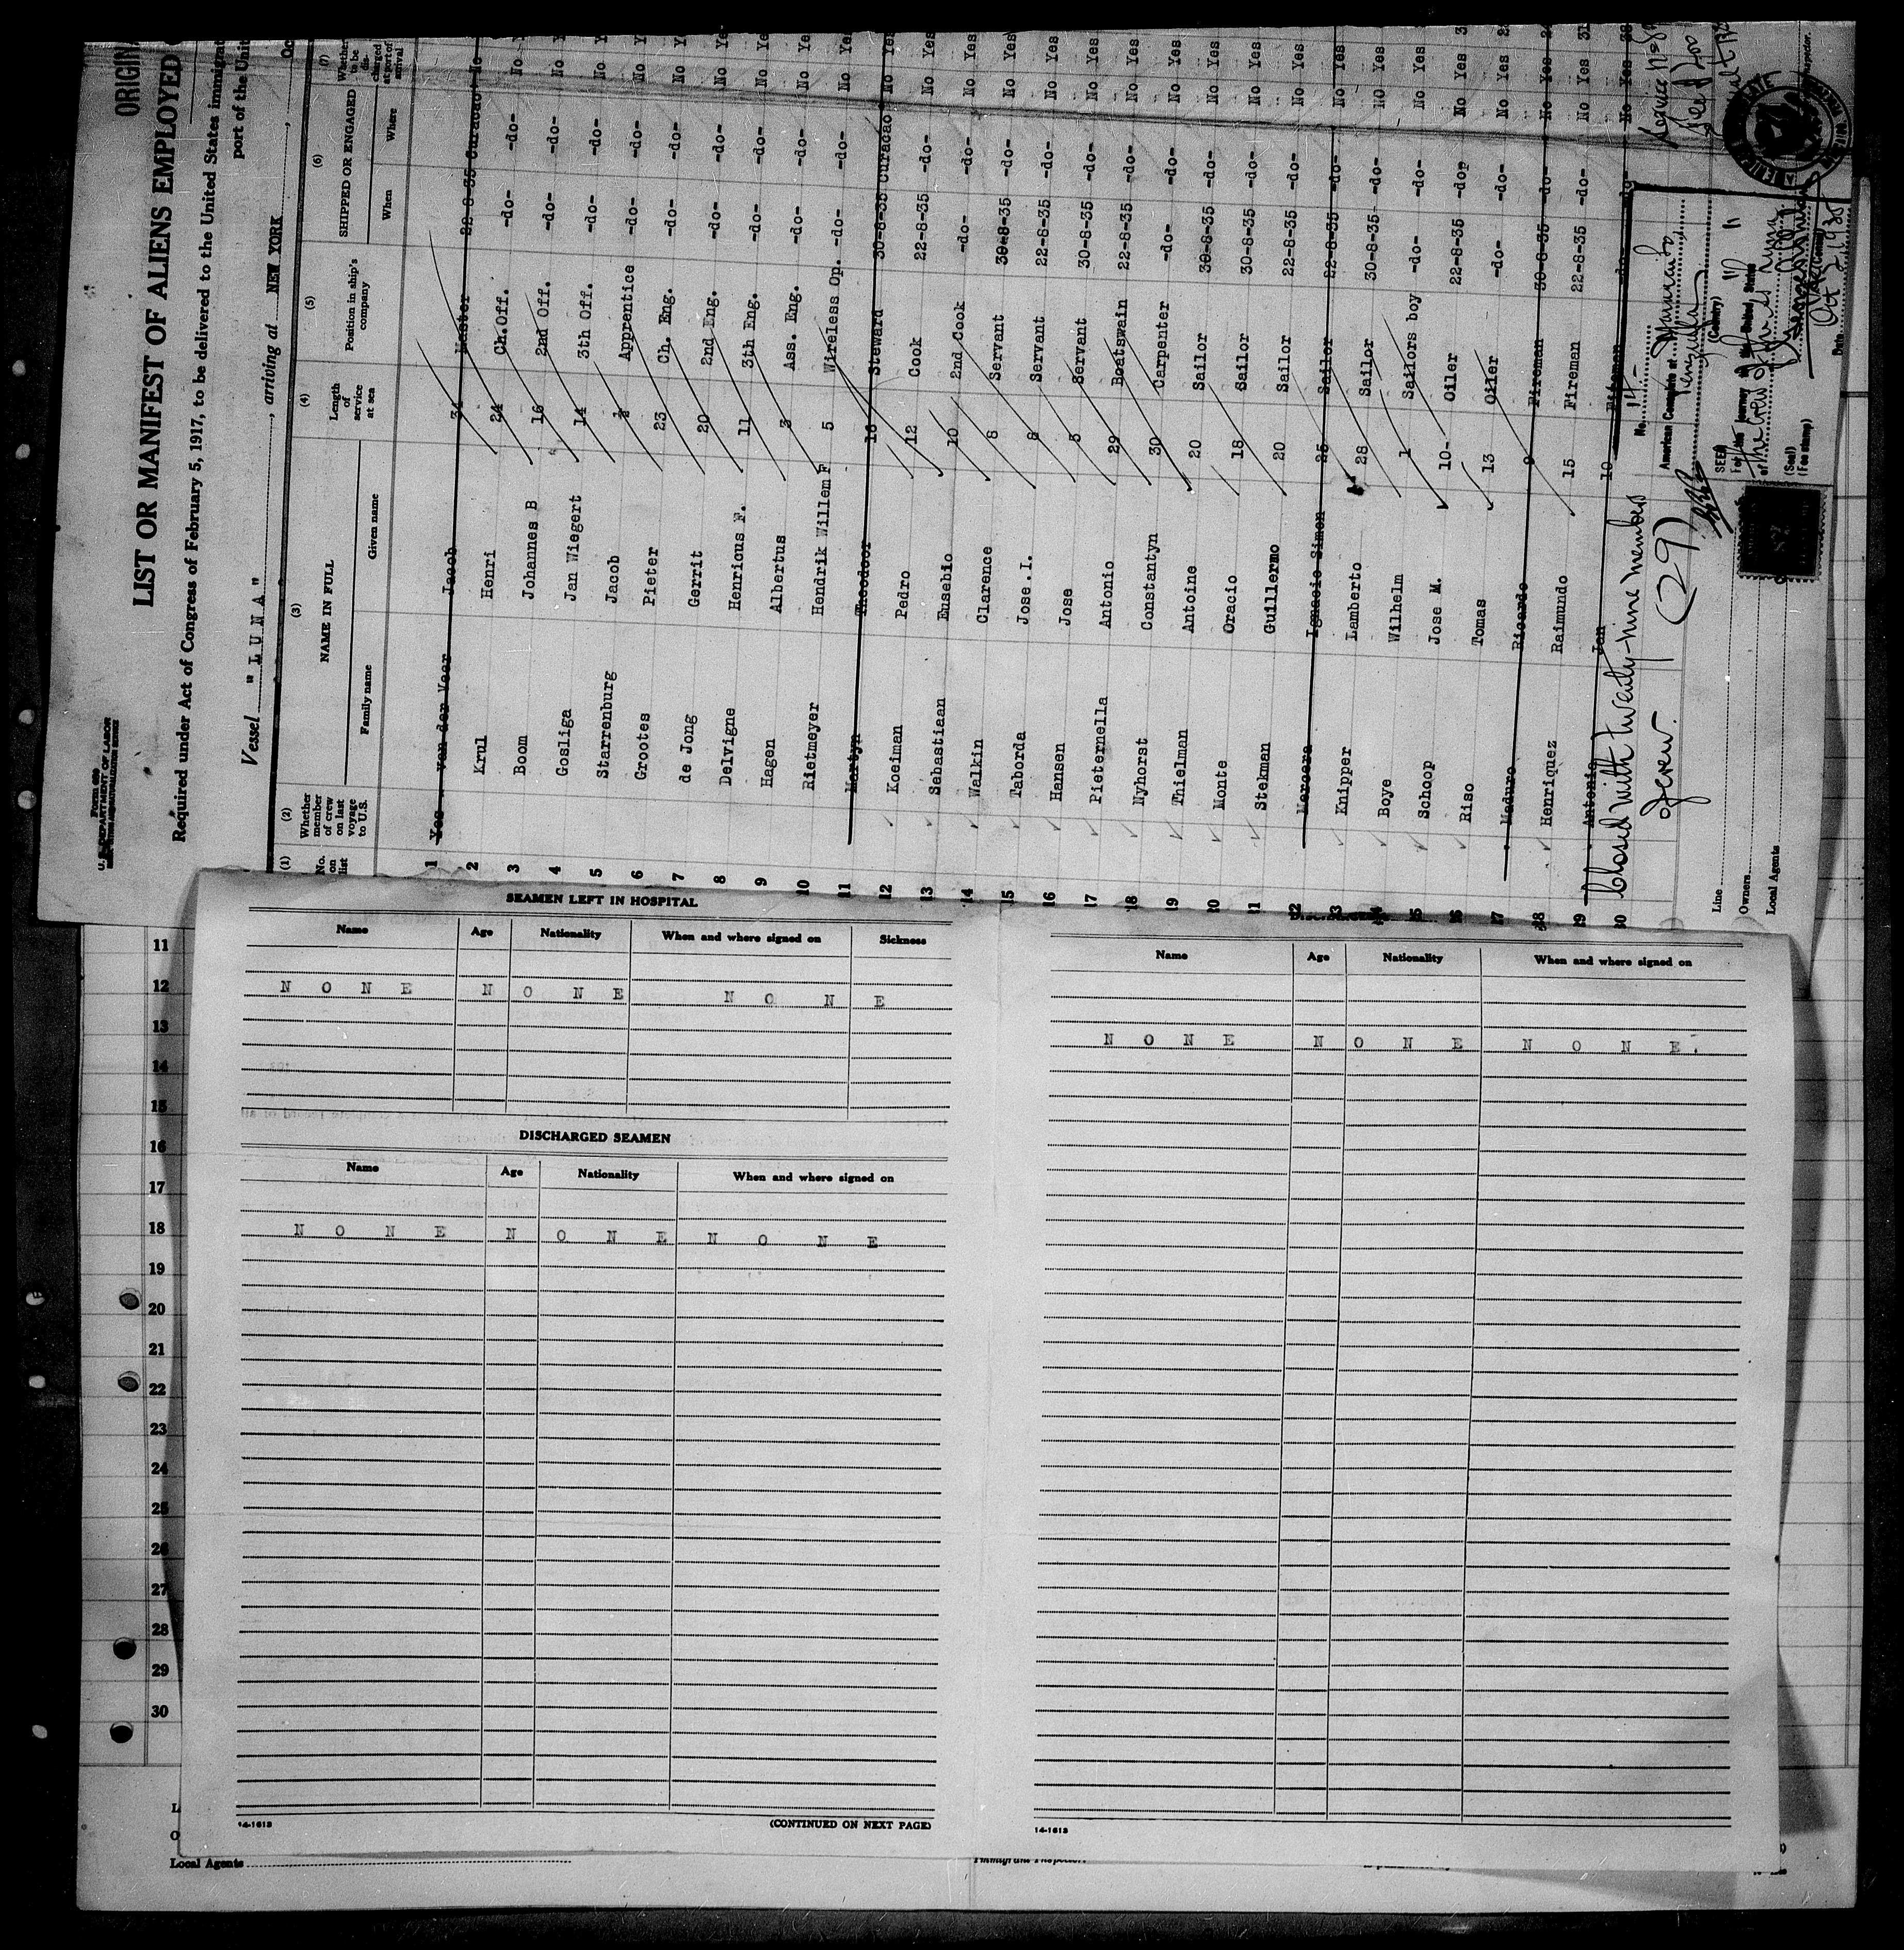 ORIGIN
Form 689
U. S. DEPARTMENT OF LABOR
LIST OR MANIFEST OF ALIENS EMPLOYED
Required under Act of Congress of February 5, 1917, to be delivered to the United States immigrat
port of the Unit
Vessel "LUNA", arriving at NEW YORK, Oc
(1) (2) (3) (4) (5) (6) (7)
No. on list
Whether member of crew on last voyage to U.S.
NAME IN FULL
Family name Given name
Length of service at sea
Position in ship's company
SHIPPED OR ENGAGED
When Where
Whether to be discharged at port of arrival
1 Yes Van der Veer Jacob 34 Master 22-8-35 Curacao No
2 Krul Henri 24 Ch.Off. -do- -do- No Y
3 Boom Johannes B 16 2nd Off. -do- -do- No Y
4 Gosliga Jan Wiegert 14 3th Off. -do- -do- No Y
5 Starrenburg Jacob ½ Apprentice -do- -do- No Y
6 Grootes Pieter 23 Ch. Eng. -do- -do- No Ye
7 de Jong Gerrit 20 2nd Eng. -do- -do- No Ye
8 Delvigne Henricus F. 11 3th Eng. -do- -do- No Ye
9 Hagen Albertus 3 Ass. Eng. -do- -do- No Ye
10 Rietmeyer Hendrik Willem F 5 Wireless Op. -do- -do- No Ye
11 Martyn Theodoor 16 Steward 30-8-35 Curacao No Yes
12 Koeiman Pedro 12 Cook 22-8-35 -do- No Yes
13 Sebastiaan Eusebio 10 2nd Cook -do- -do- No Yes
14 Walkin Clarence 8 Servant 30-8-35 -do- No Yes
15 Taborda Jose.I. 8 Servant 22-8-35 -do- No Yes
16 Hansen Jose 5 Servant 30-8-35 -do- No Yes
17 Pieternella Antonio 29 Boatswain 22-8-35 -do- No Yes
18 Nyhorst Constantyn 30 Carpenter -do- -do- No Yes
19 Thielman Antoine 20 Sailor 30-8-35 -do- No Yes
20 Monte Oracio 18 Sailor 30-8-35 -do- No Yes
21 Stekman Guillermo 20 Sailor 22-8-35 -do- No Yes
22 Mercera Ignacio Simon 25 Sailor 22-8-35 -do- No Yes
23 Knipper Lamberto 28 Sailor 30-8-35 -do- No Yes
24 Boye Wilhelm 1 Sailors boy -do- -do- No Yes
25 Schoop Jose M. 10- Oiler 22-8-35 -do- No Yes 3
26 Riso Tomas 13 Oiler -do- -do- No Yes 2
27 Maduro Ricardo 9 Fireman 30-8-35 -do- No Yes 2
28 Henriquez Raimundo 15 Fireman 22-8-35 -do- No Yes 31
29 Antonia Jan 10 Fireman -do- -do- No Yes
30
Closed with twenty-nine members
Crew. (29)
No. 14.-
American Consulate at Maracaibo
Venezuela
(Country)
SEEN
For the journey to the United States
of the crew of the
(Seal)
(Fee stamp)
Date Oct 2 1935
Line
Owners
Local Agents
SEAMEN LEFT IN HOSPITAL
Name Age Nationality When and where signed on Sickness
NONE NONE NONE
DISCHARGED SEAMEN
Name Age Nationality When and where signed on
NONE NONE NONE
14-1613 (CONTINUED ON NEXT PAGE)
Name Age Nationality When and where signed on
NONE NONE NONE.
14-1613
11
12
13
14
15
16
17
18
19
20
21
22
23
24
25
26
27
28
29
30
Local Agents